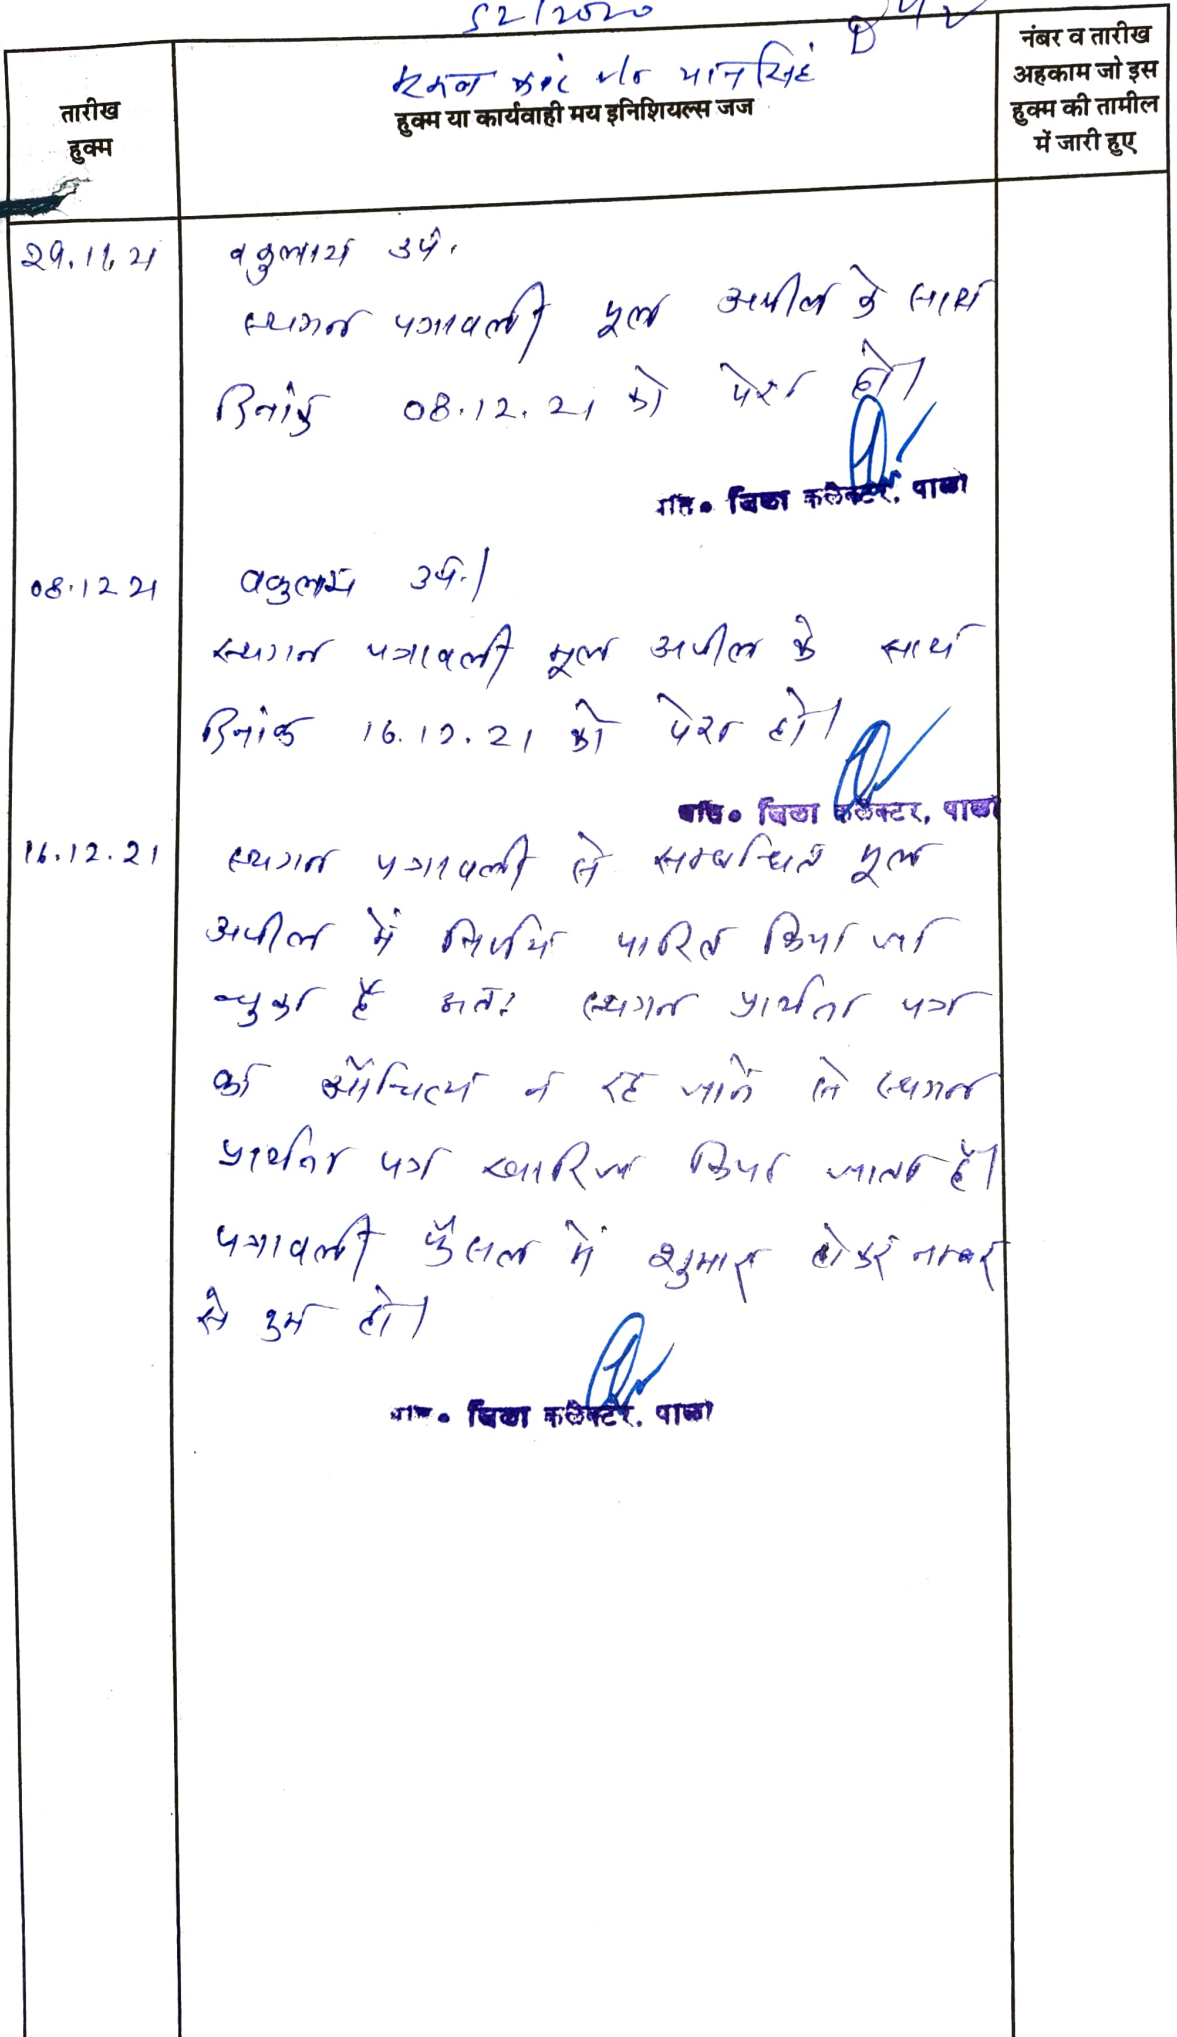 52/2020
कंवर v/s मानसिंह
तारीख
हुक्म
हुक्म या कार्यवाही मय इनिशियल्स जज
नंबर व तारीख
अहकाम जो इस
हुक्म की तामील
में जारी हुए
29.11.21 वकुलाय उप.
स्थगन पत्रावली मूल अपील के साथ
दिनांक 08.12.21 को पेश हो।
अति० जिला कलेक्टर, पाली
08.12.21 वकुलाय उप.।
स्थगन पत्रावली मूल अपील के साथ
दिनांक 16.12.21 को पेश हो।
अति० जिला कलेक्टर, पाली
16.12.21 स्थगन पत्रावली से सम्बन्धित मूल
अपील में निर्णय पारित किया जा
चुका है अतः स्थगन प्रार्थना पत्र
का औचित्य न रह जाने से स्थगन
प्रार्थना पत्र खारिज किया जाता है।
पत्रावली फैसल में शुमार होकर नम्बर
से कम हो।
अति० जिला कलेक्टर, पाली